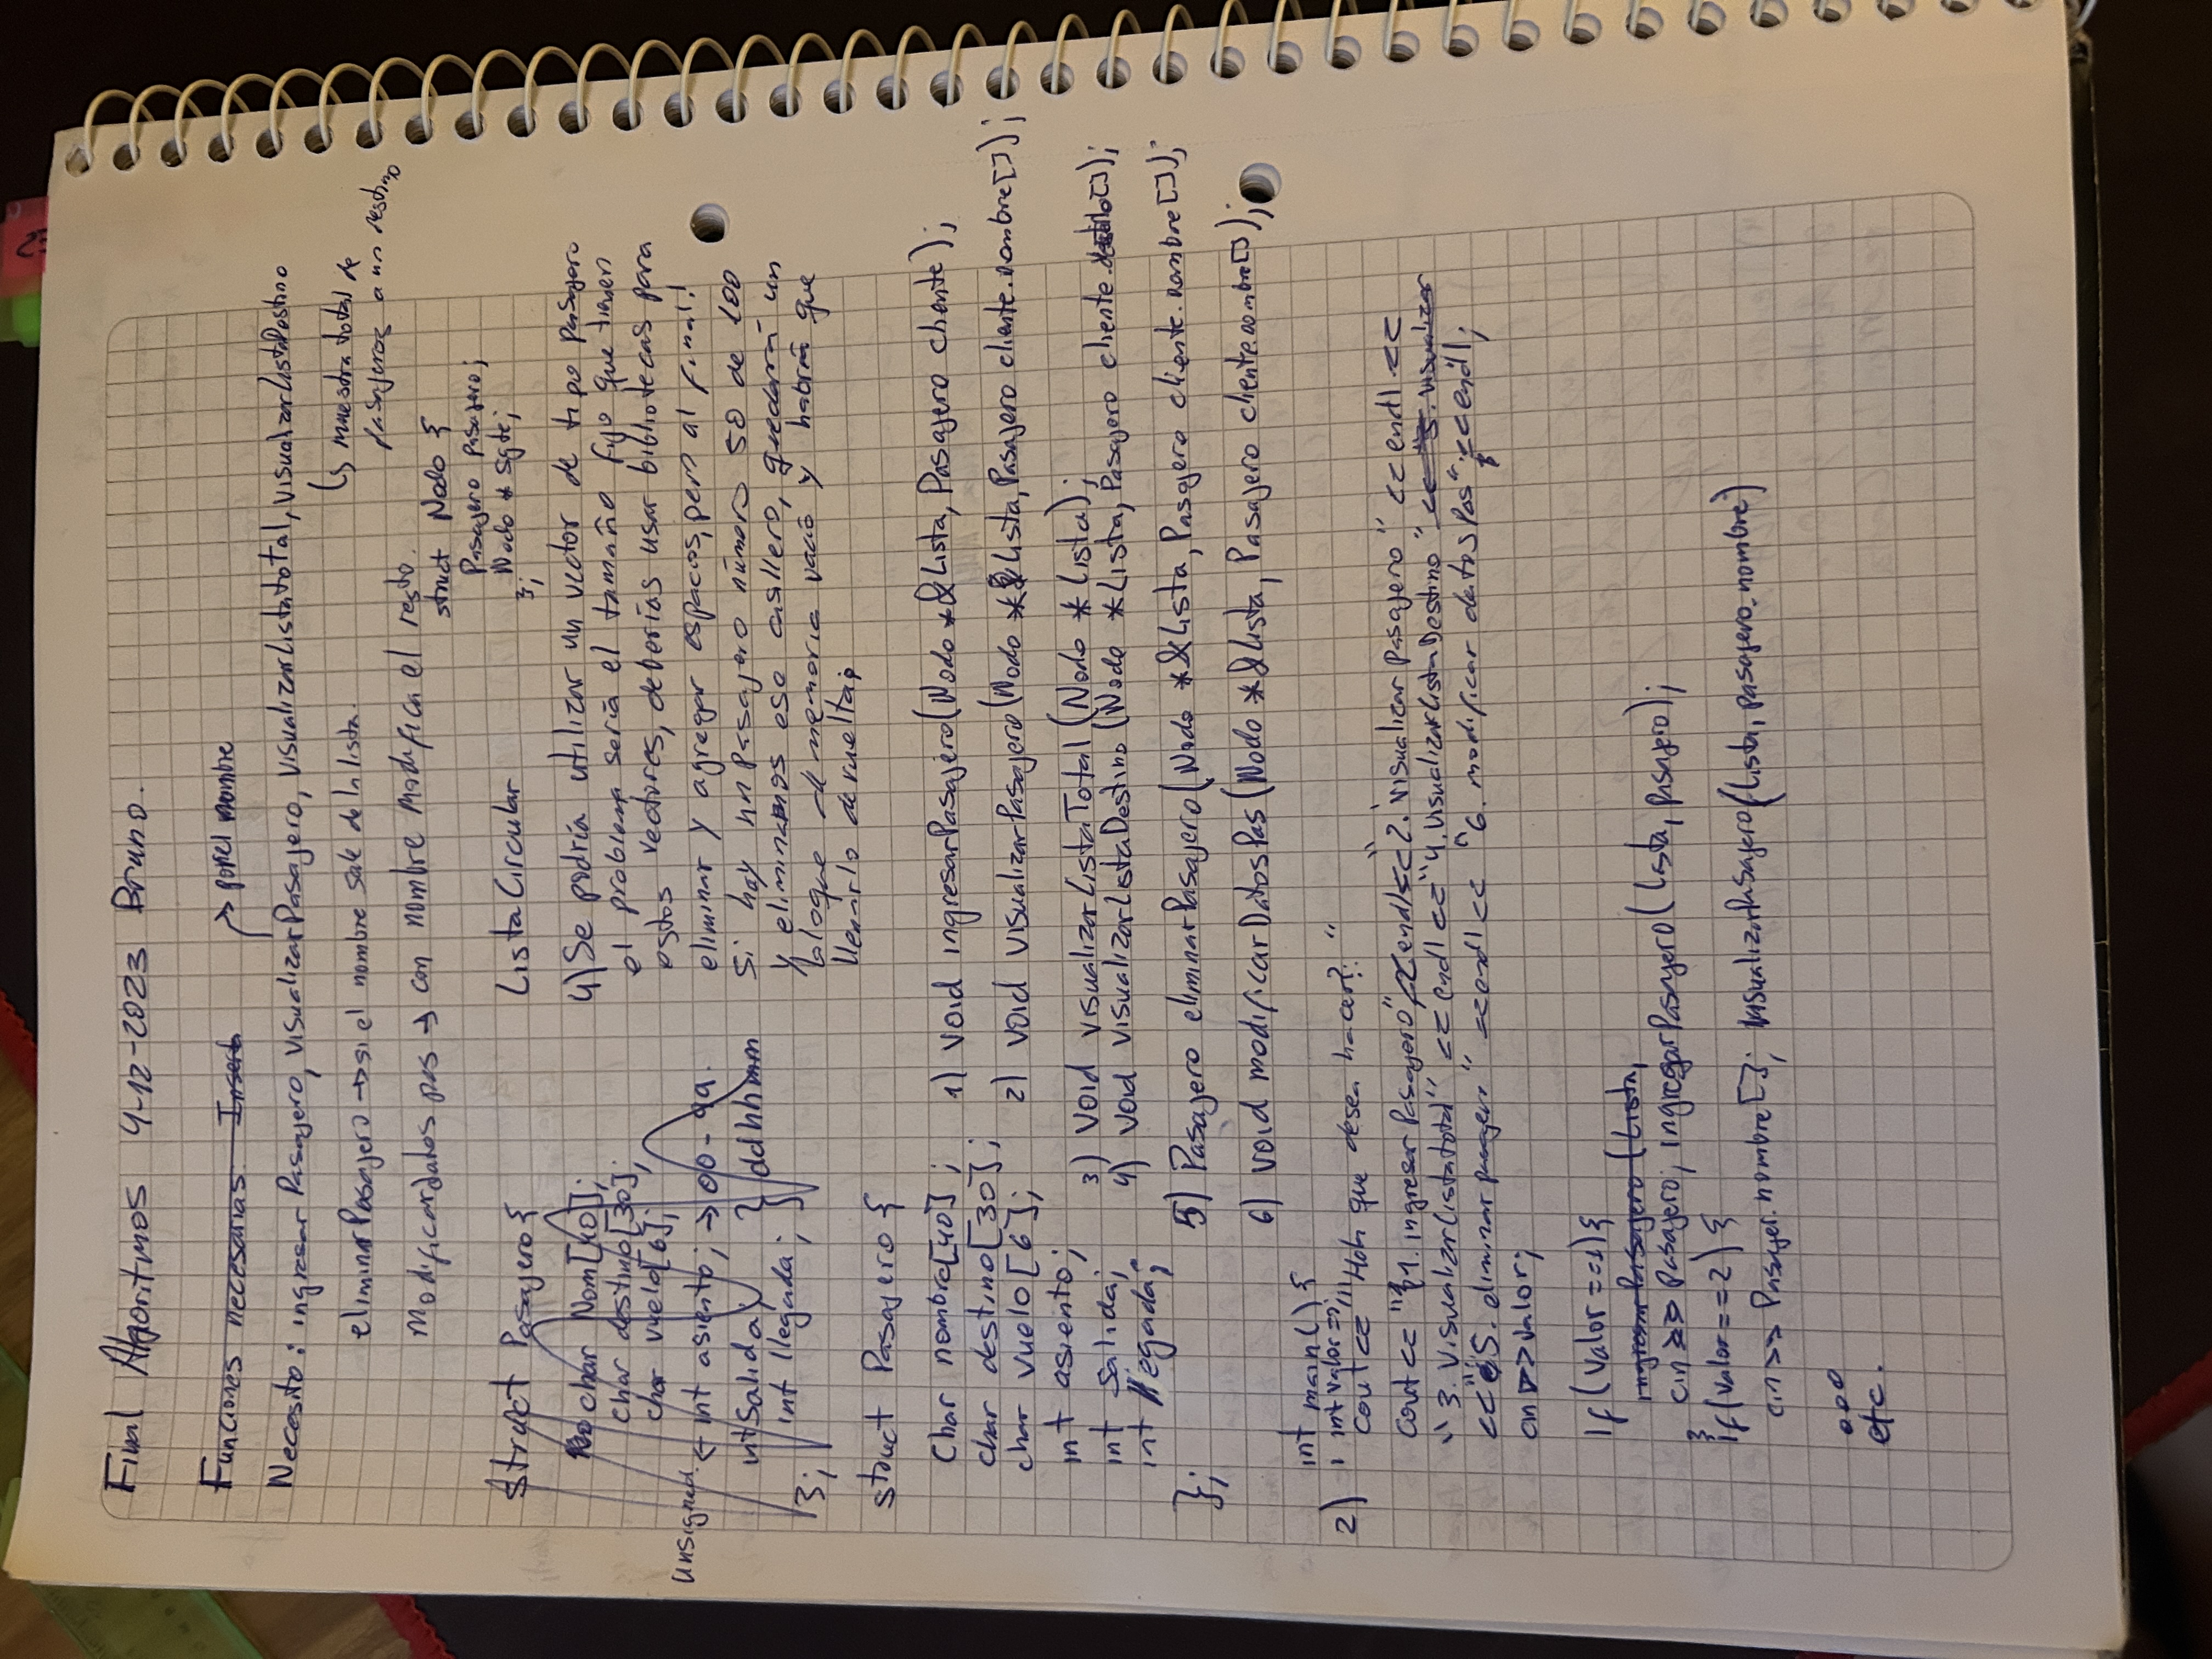 Final Algoritmos 4-12-2023 Bruno.
Funciones necesarias. Insert
↱ por el nombre
Necesito: ingresar Pasajero, visualizarPasajero, visualizarListatotal, visualizarListaDestino
↳ muestra total de
pasajeros a un destino
eliminarPasajero → si el nombre sale de la lista.
Modificardatos pas → con nombre modifica el resto.
struct Nodo {
Pasajero pasajero;
Nodo * sgte;
};
struct Pasajero {
char Nom[40];
char destino[30];
char vuelo[6];
unsigned. ← int asiento; → 00-99.
int Salida;
int llegada; } ddhhmm
};
Lista Circular
4) Se podría utilizar un vector de tipo pasajero
el problema sería el tamaño fijo que tienen
estos vectores, deberías usar bibliotecas para
eliminar y agregar espacios, pero al final!
si hay un pasajero número 50 de 100
y eliminamos ese casillero, quedará un
bloque de memoria vacío y habría que
llenarlo de vuelta;
struct Pasajero {
Char nombre[40];
char destino[30];
char vuelo[6];
int asiento;
int salida;
int llegada;
};
1) void ingresarPasajero(Nodo *&Lista, Pasajero cliente);
2) void visualizarPasajero(Nodo *&Lista, Pasajero cliente.nombre[]);
3) void visualizarListaTotal(Nodo *Lista);
4) void visualizarListaDestino(Nodo *Lista, Pasajero cliente.[]);
5) Pasajero eliminarPasajero(Nodo *&Lista, Pasajero cliente.nombre[]);
6) void modificarDatosPas(Nodo *&Lista, Pasajero cliente.nombre[]);
int main() {
2) int valor =
cout << "Hola que desea hacer?: "
cout << "1. ingresar Pasajero" << endl << "2. visualizar pasajero" << endl <<
"3. Visualizarlistatotal" << endl << "4. VisualizarlistaDestino" << "5. visualizar
<< "5. eliminar pasajero" << endl << "6. modificar datosPas" << endl;
cin >> valor;
If (valor == 1) {
ingresarPasajero (Lista,
cin >> Pasajero; ingregarPasajero(lista, pasajero);
}
if (valor == 2) {
cin >> Pasajer.nombre[]; visualizarPasajero(lista, pasajero.nombre)
ooo
etc.